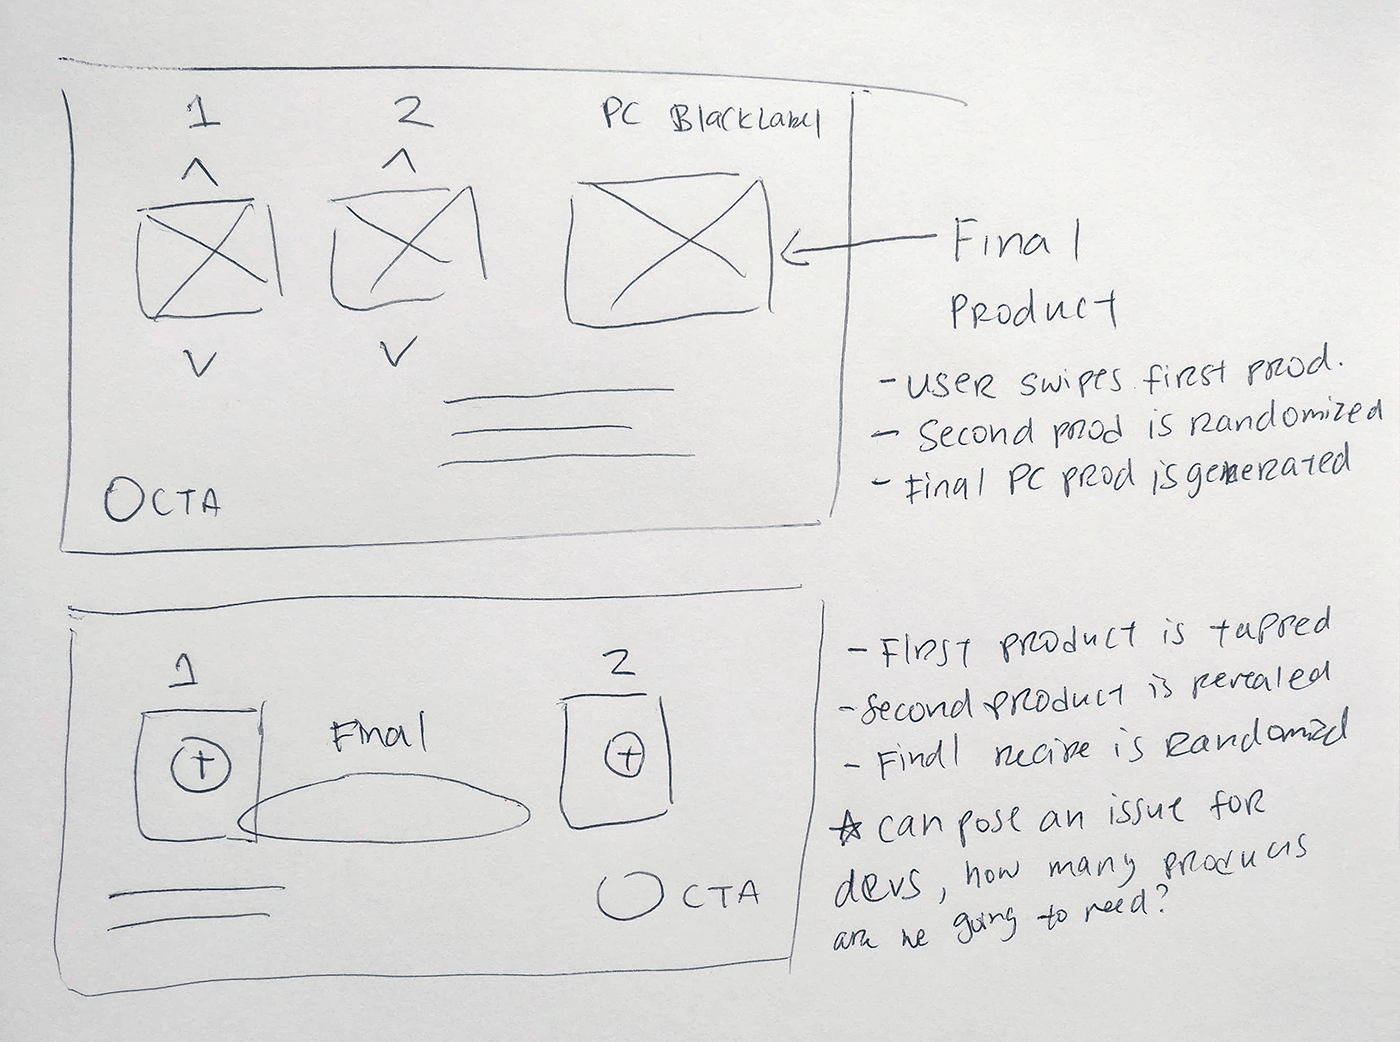 1 2 PC BlackLabel
Final
Product
- User swipes first prod.
- Second prod is randomized
- Final PC prod is generated
CTA
1 2
Final
CTA
- First product is tapped
- Second product is revealed
- Final recipe is randomized
☆ can pose an issue for
devs, how many products
are we going to need?